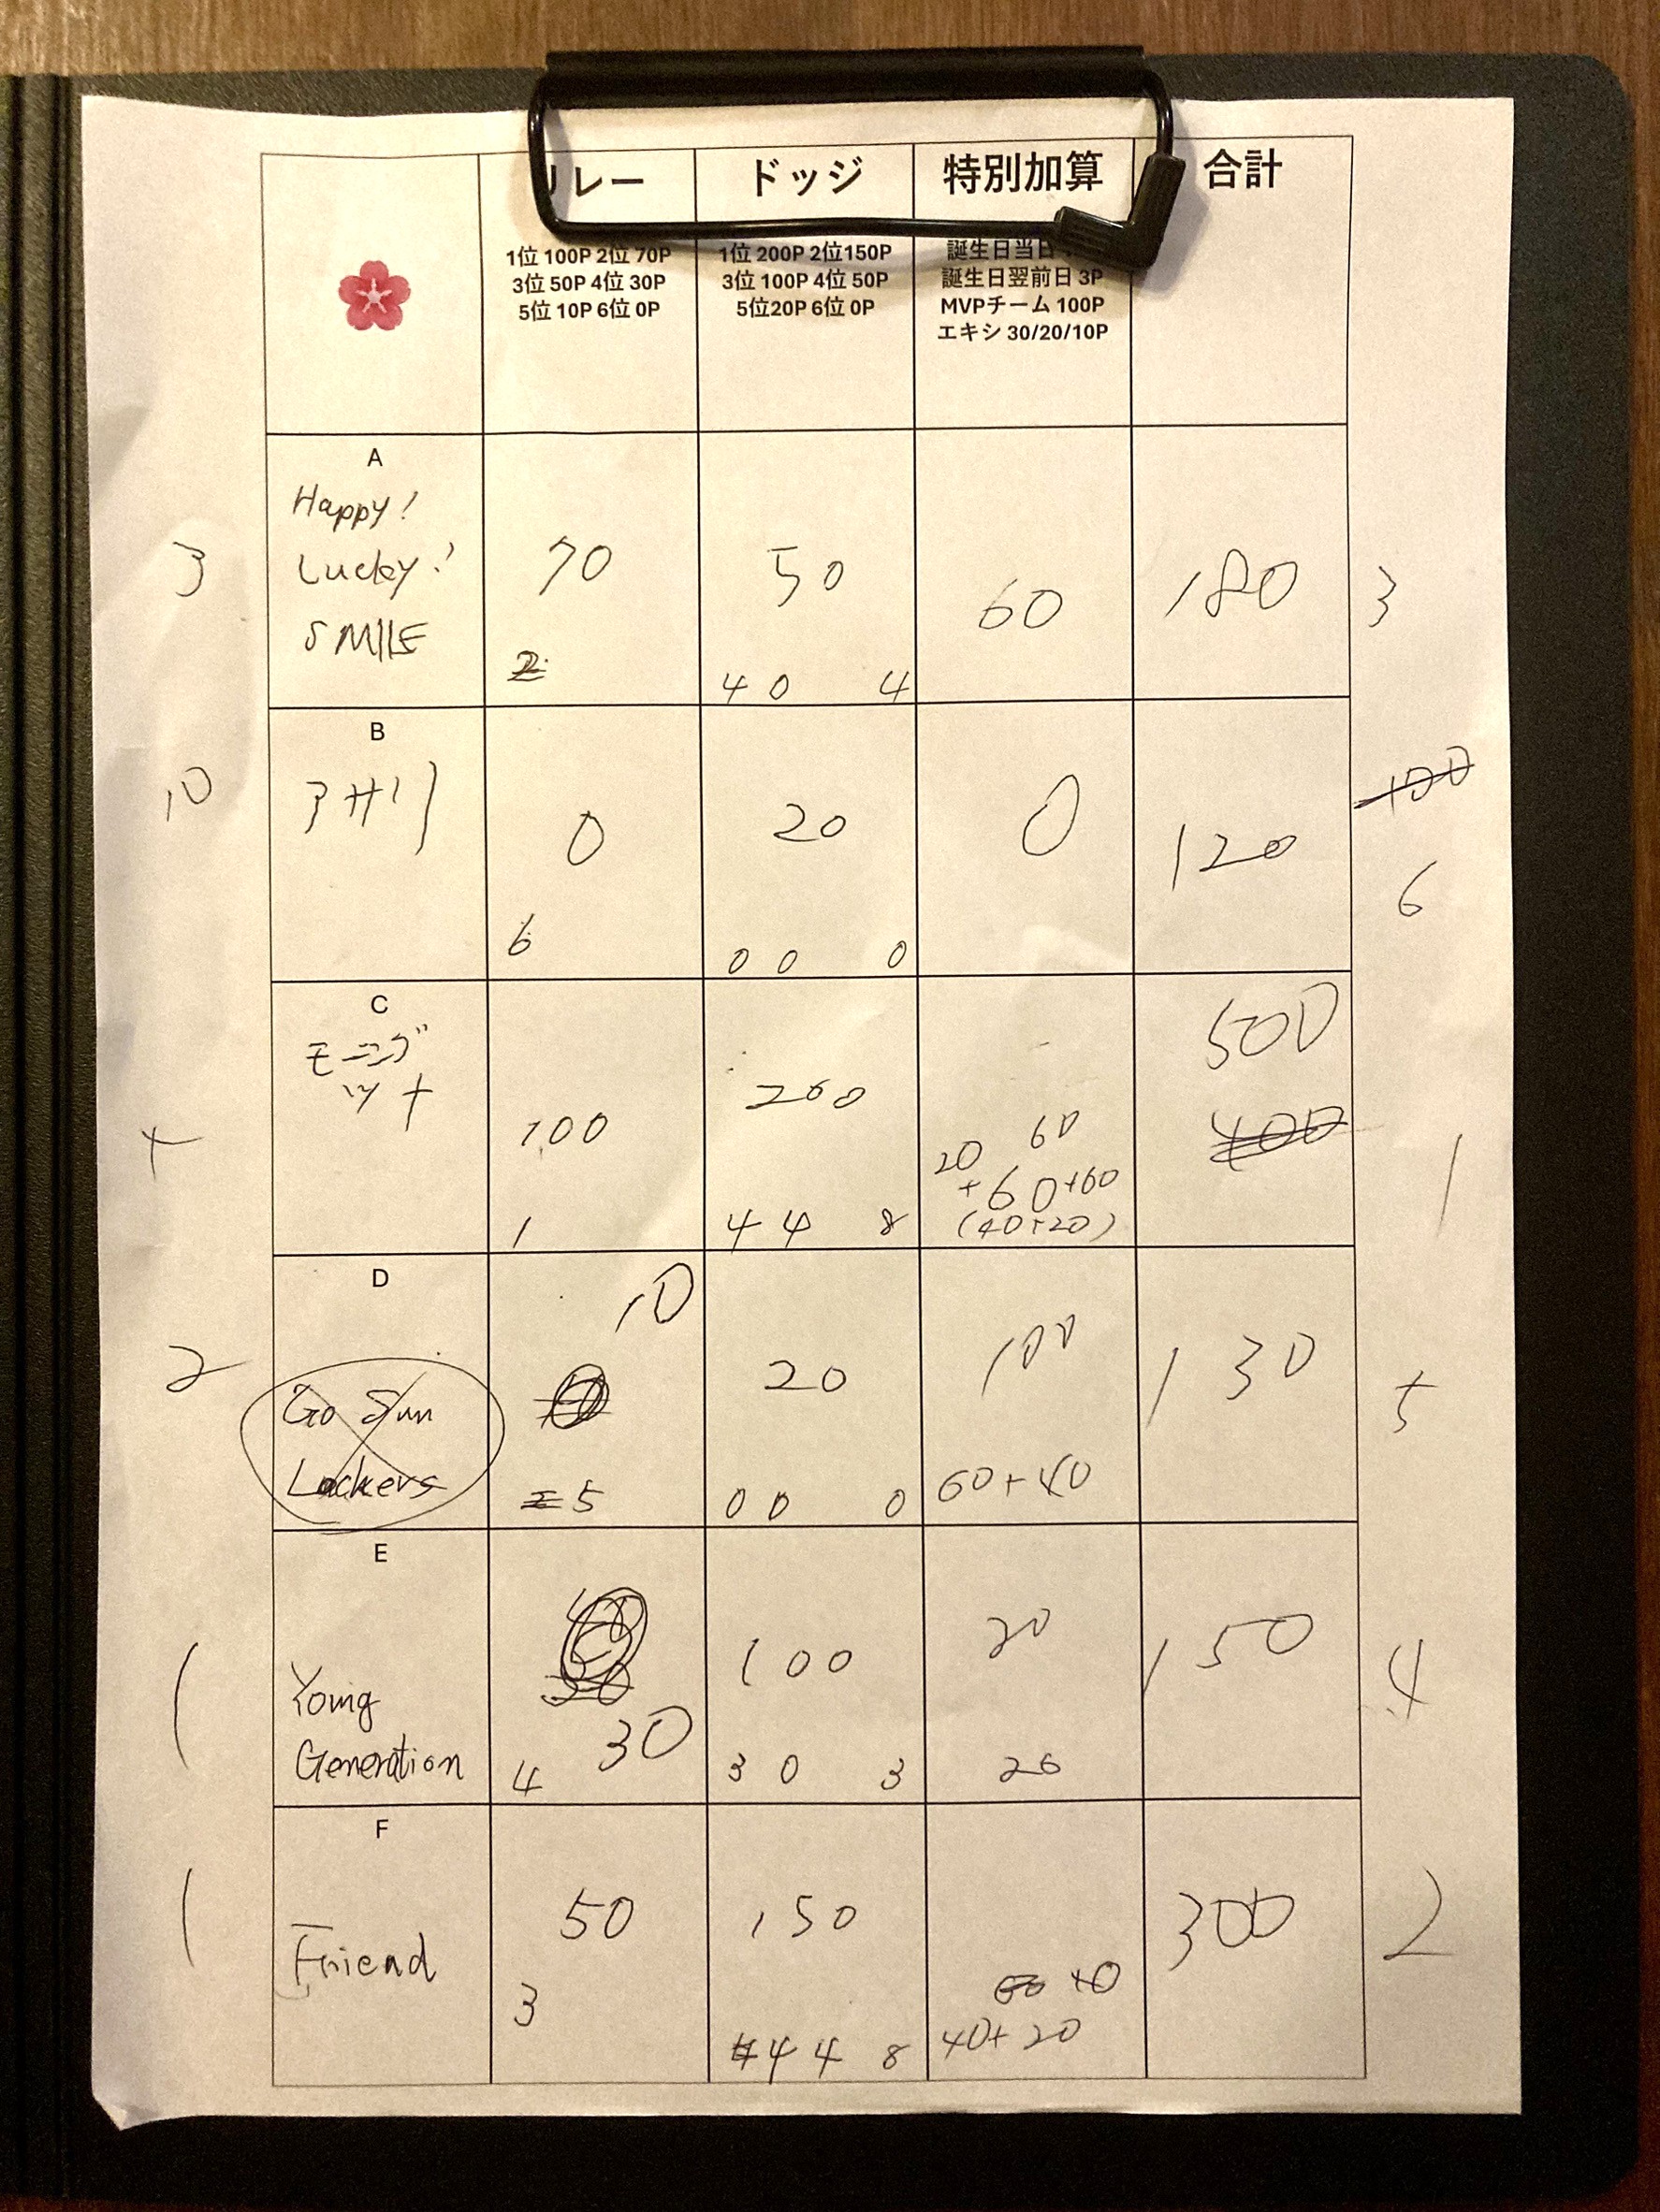 リレー ドッジ 特別加算 合計
1位 100P 2位 70P
3位 50P 4位 30P
5位 10P 6位 0P
1位 200P 2位150P
3位 100P 4位 50P
5位20P 6位 0P
誕生日当日
誕生日翌前日 3P
MVPチーム 100P
エキシ 30/20/10P
A
Happy!
Lucky!
SMILE
3 70 50 60 180 3
2 40 4
B
アサリ
10 0 20 0 120 100
6
6 0 0 0
C
モーニング
ツナ
500
100 200 60 400
20 + 60 +60
(40+20)
1 4 4 8
1
D
Go Sun
Lockers
2 10 20 100 130 5
5 0 0 0 60+40
E
Young
Generation
30 100 20 150 4
4 3 0 3 20
F
Friend
50 150 300 2
3 4 4 8 40+ 20